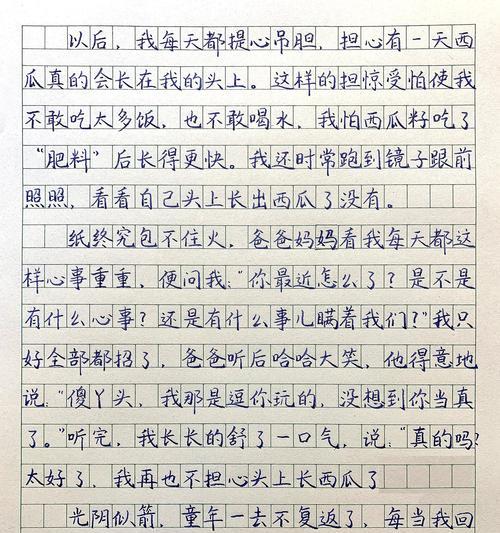 以后，我每天都提心吊胆，担心有一天西
瓜真的会长在我的头上。这样的担惊受怕使我
不敢吃太多饭，也不敢喝水，我怕西瓜籽吃了
“肥料”后长得更快。我还时常跑到镜子跟前
照照，看看自己头上长出西瓜了没有。
纸终究包不住火，爸爸妈妈看我每天都这
样心事重重，便问我：“你最近怎么了？是不是
有什么心事？还是有什么事儿瞒着我们？”我只
好全部都招了，爸爸听后哈哈大笑，他得意地
说：“傻丫头，我那是逗你玩的，没想到你当真
了。”听完，我长长的舒了一口气，说：“真的吗？
太好了，我再也不担心头上长西瓜了
光阴似箭，童年一去不复返了，每当我回